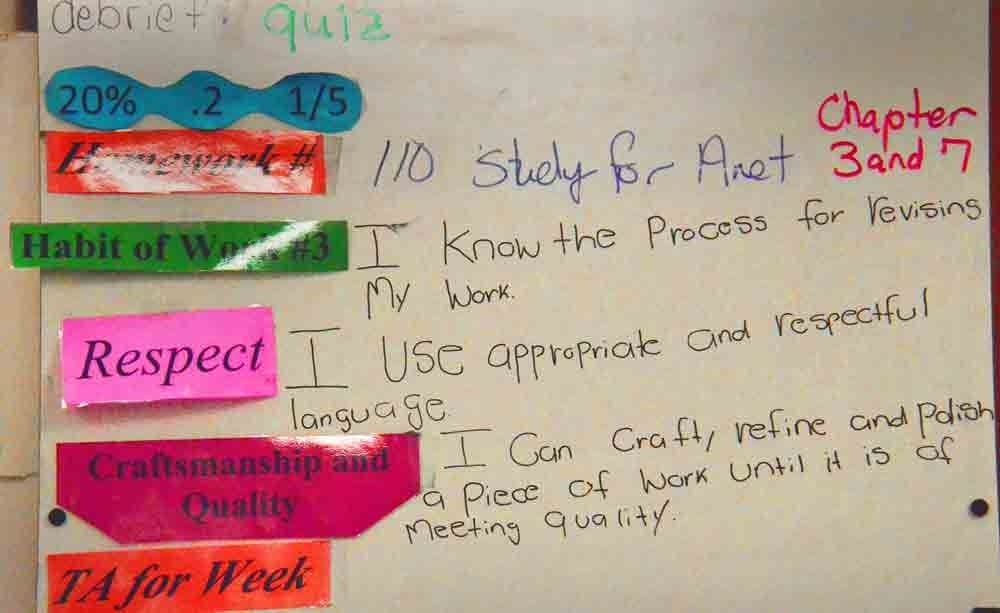 debrief. quiz
20% .2 1/5
Homework # 110 Study for Anet Chapter
3 and 7
Habit of Work #3 I Know the Process for revising
My Work.
Respect I Use appropriate and respectful
language.
Craftsmanship and
Quality
I Can Craft, refine and Polish
a Piece of Work Until it is of
Meeting quality.
TA for Week